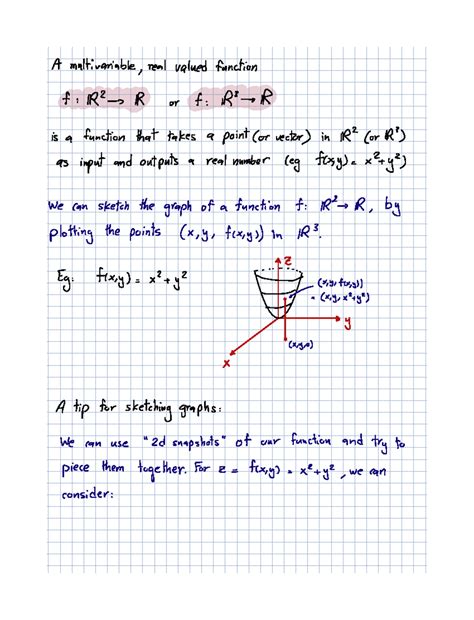 A multivariable, real valued function
f: ℝ² → ℝ or f: ℝ² → ℝ
is a function that takes a point (or vector) in ℝ² (or ℝ³)
as input and outputs a real number (eg f(x,y) = x² + y²)
We can sketch the graph of a function f: ℝ² → ℝ, by
plotting the points (x, y, f(x,y)) in ℝ³.
Eg: f(x,y) = x² + y²
z
(x,y, f(x,y))
= (x,y, x²+y²)
y
(x,y,0)
x
A tip for sketching graphs:
We can use "2d snapshots" of our function and try to
piece them together. For z = f(x,y) = x² + y², we can
consider: